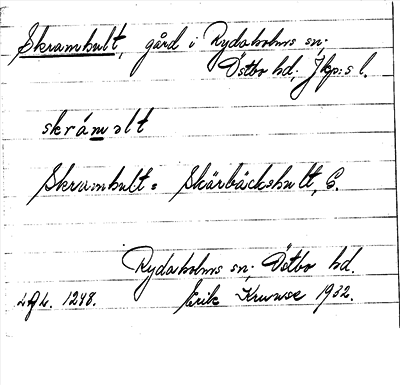 Skramhult, gård i Rydaholms sn;
Östbo hd; Jkp:s l.
skrámǝlt
Skramhult = Skärbäckshult, E.
Rydaholms sn; Östbo hd.
1248. Erik Kruuse 1932.